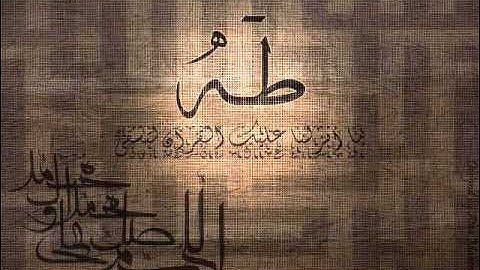 طه
ما أنزلنا عليك القرآن لتشقى
اللهم صل على محمد وآل محمد